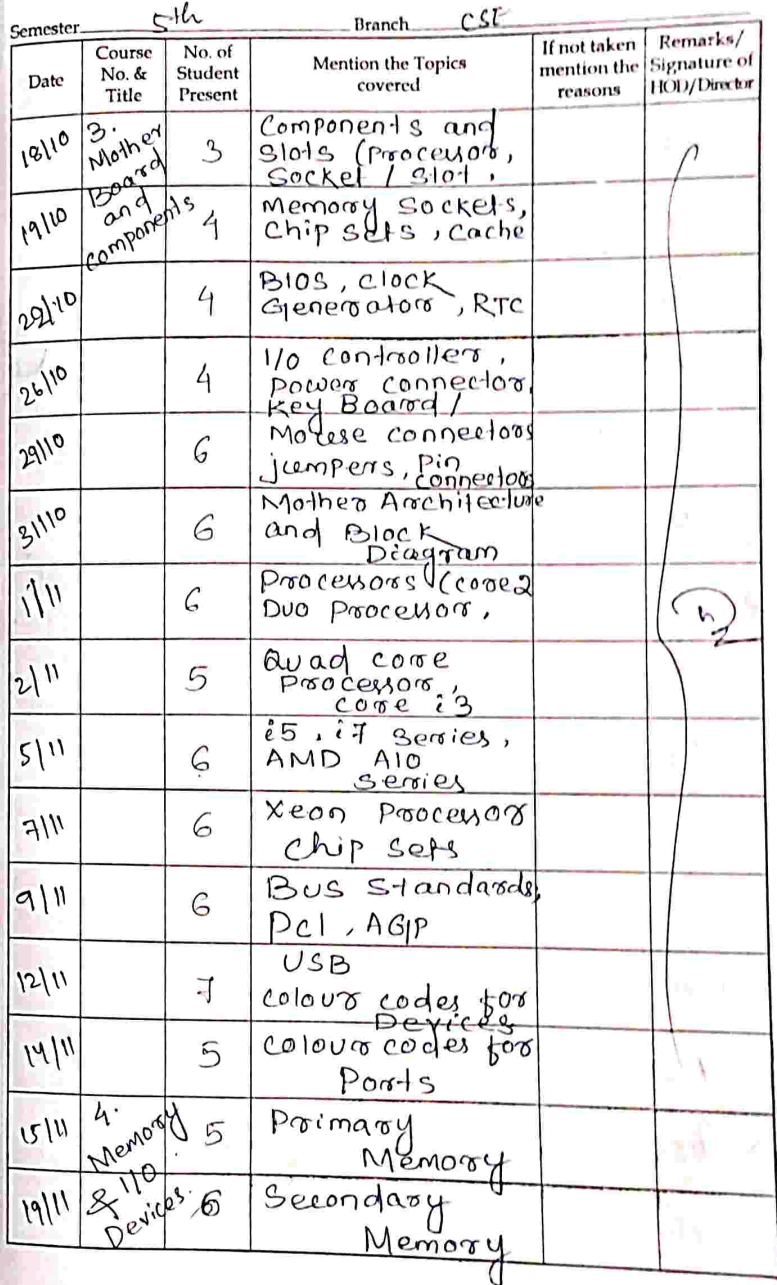 Semester 5th Branch CSE
Date Course No. & Title No. of Student Present Mention the Topics covered If not taken mention the reasons Remarks/ Signature of HOD/Director
18/10 3. Mother Board and components 3 Components and
Slots (Processor,
Socket / Slot,
19/10 4 Memory Sockets,
Chip sets, Cache
4 BIOS, Clock
Generator, RTC
26/10 4 I/O Controller,
Power connector,
Key Board /
29/10 6 Mouse connectors
jumpers, Pin
connectors
31/10 6 Mother Architecture
and Block
Diagram
1/11 6 Processors (core2
Duo Processor,
2/11 5 Quad core
Processor,
core i3
5/11 6 i5, i7 Series,
AMD A10
series
7/11 6 Xeon Processor
Chip Sets
9/11 6 Bus Standards,
PCI, AGP
12/11 7 USB
Colour codes for
Devices
14/11 5 Colour codes for
Ports
15/11 4. Memory & I/O Devices. 5 Primary
Memory
19/11 6 Secondary
Memory